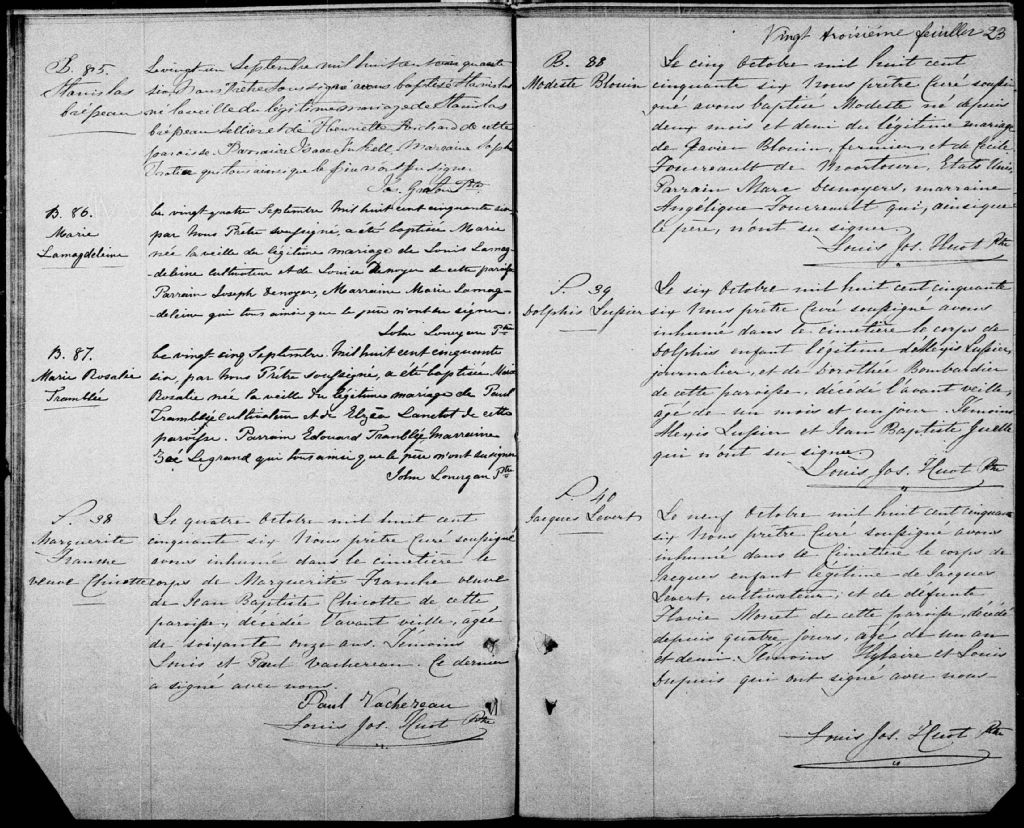 B. 85.
Stanislas
Crépeau
Le vingt un Septembre mil huit cent cinquante
six Nous Prêtre soussigné avons baptisé Stanislas
né la veille du légitime mariage de Stanislas
Crépeau Sellier et de Henriette Richard de cette
paroisse. Parrain Isaac Marraine
qui tous ainsi que le père n'ont su signer.
Ptre
B. 86.
Marie
Lamagdeleine
Le vingt quatre Septembre Mil huit cent cinquante six
par Nous Prêtre soussigné, a été baptisée Marie
née la veille du légitime mariage de Louis Lamag-
deleine cultivateur et de Louise Denoyer de cette paroisse
Parrain Joseph Denoyer, Marraine Marie Lamag-
deleine qui tous ainsi que le père n'ont su signer.
John Lonergan Ptre
B. 87.
Marie Rosalie
Tramblée
Le vingt sinq Septembre Mil huit cent cinquante
six, par Nous Prêtre soussigné, a été baptisée Marie
Rosalie née la veille du légitime mariage de Paul
Tramblée cultivateur et de Elzéa Lanctot de cette
paroisse. Parrain Edouard Tramblée Marraine
Zoé Legrand qui tous ainsi que le père n'ont su signer
John Lonergan Ptre
S. 38
Marguerite
veuve Chicotte
Le quatre Octobre mil huit cent
cinquante six Nous prêtre Curé soussigné
avons inhumé dans le cimetière le
corps de Marguerite veuve
de Jean Baptiste Chicotte de cette
paroisse, décédée l'avant veille, agée
de soixante onze ans. Témoins
Louis et Paul Vachereau. Ce dernier
a signé avec nous.
Paul Vachereau
Louis Jos. Huot Ptre
Vingt troisième feuillet 23
B. 88
Modeste Blouin
Le cinq Octobre mil huit cent
cinquante six Nous prêtre Curé soussi-
gné avons baptisé Modeste né depuis
deux mois et demi du légitime mariage
de Xavier Blouin, fermier, et de Cécile
Foucreault de Moortown, Etats Unis,
Parrain Marc Denoyers, marraine
Angélique Foucreault qui, ainsi que
le père, n'ont su signer.
Louis Jos. Huot Ptre
S. 39
Dolphis Lussier
Le six Octobre mil huit cent cinquante
six Nous prêtre Curé soussigné avons
inhumé dans le cimetière le corps de
Dolphis enfant légitime de Alexis Lussier,
journalier, et de Dorothée Bombardier
de cette paroisse, décédé l'avant veille,
agé de un mois et un jour. Témoins
Alexis Lussier et Jean Baptiste
qui n'ont su signer.
Louis Jos. Huot Ptre
S. 40
Jacques Levert
Le neuf Octobre mil huit cent cinquante
six Nous prêtre Curé soussigné avons
inhumé dans le Cimetière le corps de
Jacques enfant légitime de Jacques
Levert, cultivateur, et de défunte
Flavie Monet de cette paroisse, décédé
depuis quatre jours, agé de un an
et demi. Témoins Hylaire et Louis
Dupuis qui ont signé avec nous
Louis Jos. Huot Ptre